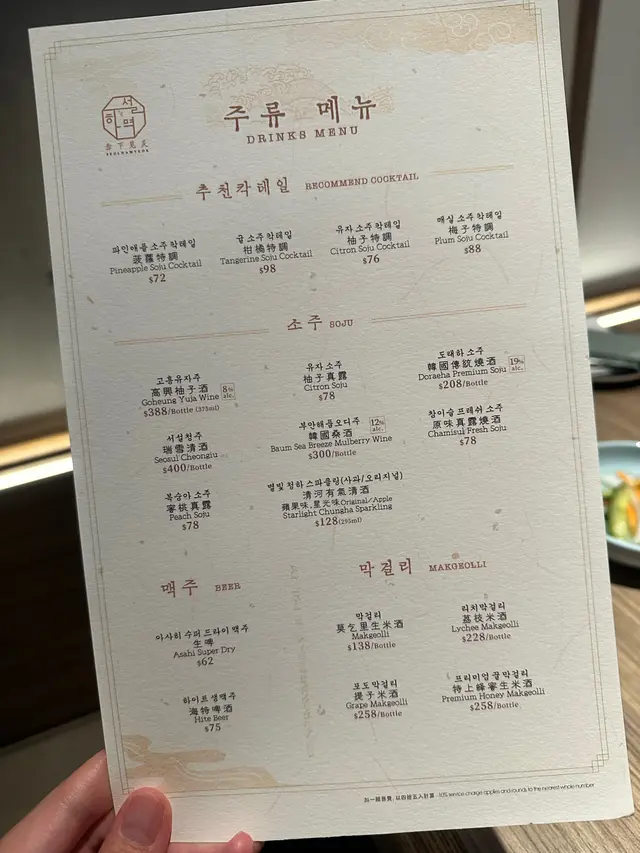 설하멱
舍下覓炙
SEOLHAMYEOK
주류 메뉴
DRINKS MENU
추천칵테일 RECOMMEND COCKTAIL
파인애플 소주 칵테일
菠蘿特調
Pineapple Soju Cocktail
$72
귤 소주 칵테일
柑橘特調
Tangerine Soju Cocktail
$98
유자 소주 칵테일
柚子特調
Citron Soju Cocktail
$76
매실 소주 칵테일
梅子特調
Plum Soju Cocktail
$88
소주 SOJU
고흥유자주
高興柚子酒
Goheung Yuja Wine
8% alc.
$388/Bottle (375ml)
유자 소주
柚子真露
Citron Soju
$78
도래하 소주
韓國傳統燒酒
Doraeha Premium Soju
19% alc.
$208/Bottle
서설청주
瑞雪清酒
Seosul Cheongju
$400/Bottle
부안해풍오디주
韓國桑酒
12% alc.
Baum Sea Breeze Mulberry Wine
$300/Bottle
참이슬 프레쉬 소주
原味真露燒酒
Chamisul Fresh Soju
$78
복숭아 소주
蜜桃真露
Peach Soju
$78
별빛 청하 스파클링(사과/오리지널)
清河有氣清酒
蘋果味,星光味Original/Apple
Starlight Chungha Sparkling
$128(295ml)
맥주 BEER
아사히 수퍼 드라이 맥주
生啤
Asahi Super Dry
$62
하이트 생맥주
海特啤酒
Hite Beer
$75
막걸리 MAKGEOLLI
막걸리
莫乞里生米酒
Makgeolli
$138/Bottle
리치막걸리
荔枝米酒
Lychee Makgeolli
$228/Bottle
포도막걸리
提子米酒
Grape Makgeolli
$258/Bottle
프리미엄 꿀막걸리
特上蜂蜜生米酒
Premium Honey Makgeolli
$258/Bottle
加一服務費, 以四捨五入計算 · 10% service charge applies and rounds to the nearest whole number